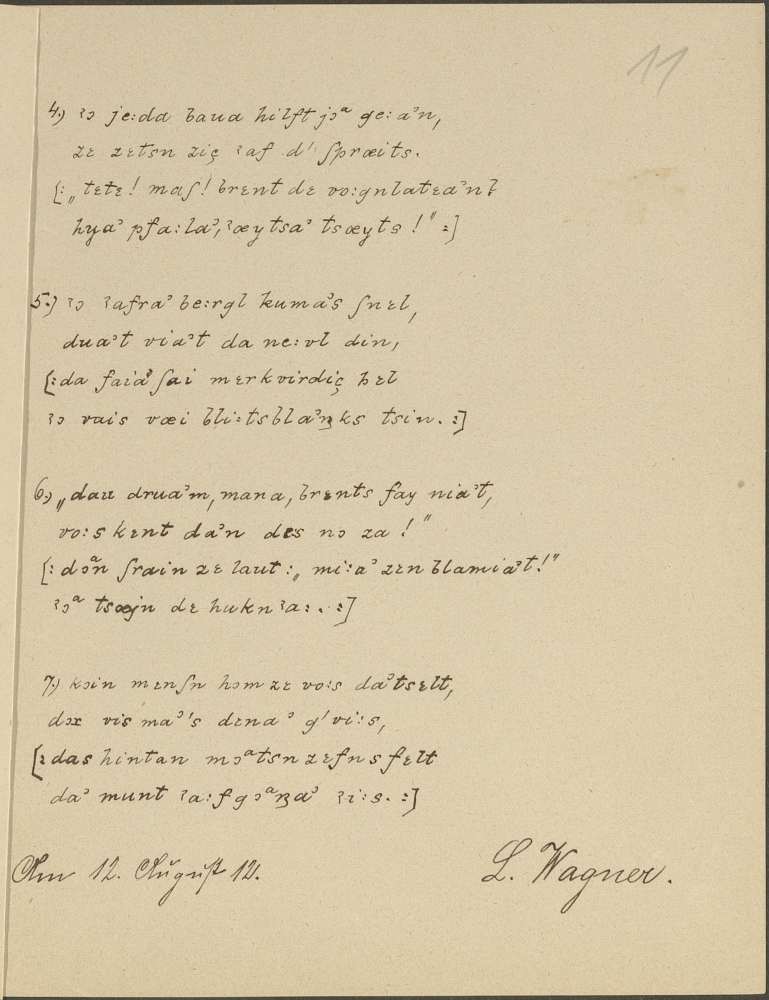 11
4.) ɂɔ je:da baua hilft jɔᵃ ge:aᵓn,
zɛ zɛtsn ziç ɂaf d' ʃpræits.
[: „tɛtɛ! maʃ! brɛnt dɛ vo:gnlatɛaᵓn!
hyaᵓ pfa:laᵓ, ɂæytsaᵓ tsæyts!" :]
5.) ɂɔ ɂafraᵓ be:rgl kumaᵓs ʃnɛl,
duaᵓt viaᵓt da ne:vl din,
[: da faiaᵓ ʃai mɛrkvirdiç hɛl
ɂɔ vais væi bli:tsblaᵓŋks tsin. :]
6.) „dau druaᵓm, mana, brɛnts fay niaᵓt,
vo:s kɛnt daᵓn des nɔ za!"
[: dɔᵃn ʃrain zɛ laut: „mi:aᵓ zɛn blamiaᵓt!"
ɂɔᵃ tsæjn dɛ hukn ɂa:. :]
7.) kɔin mɛnʃn hɔm zɛ vo:s daᵓtsɛlt,
dɔx vis maᵓ's dɛnaᵓ g'vi:s,
[: das hintan mɔᵃtsnzɛfns fɛlt
daᵓ munt ɂa:fgɔᵃŋaᵓ ɂi:s. :]
Am 12. August 12.
L. Wagner.